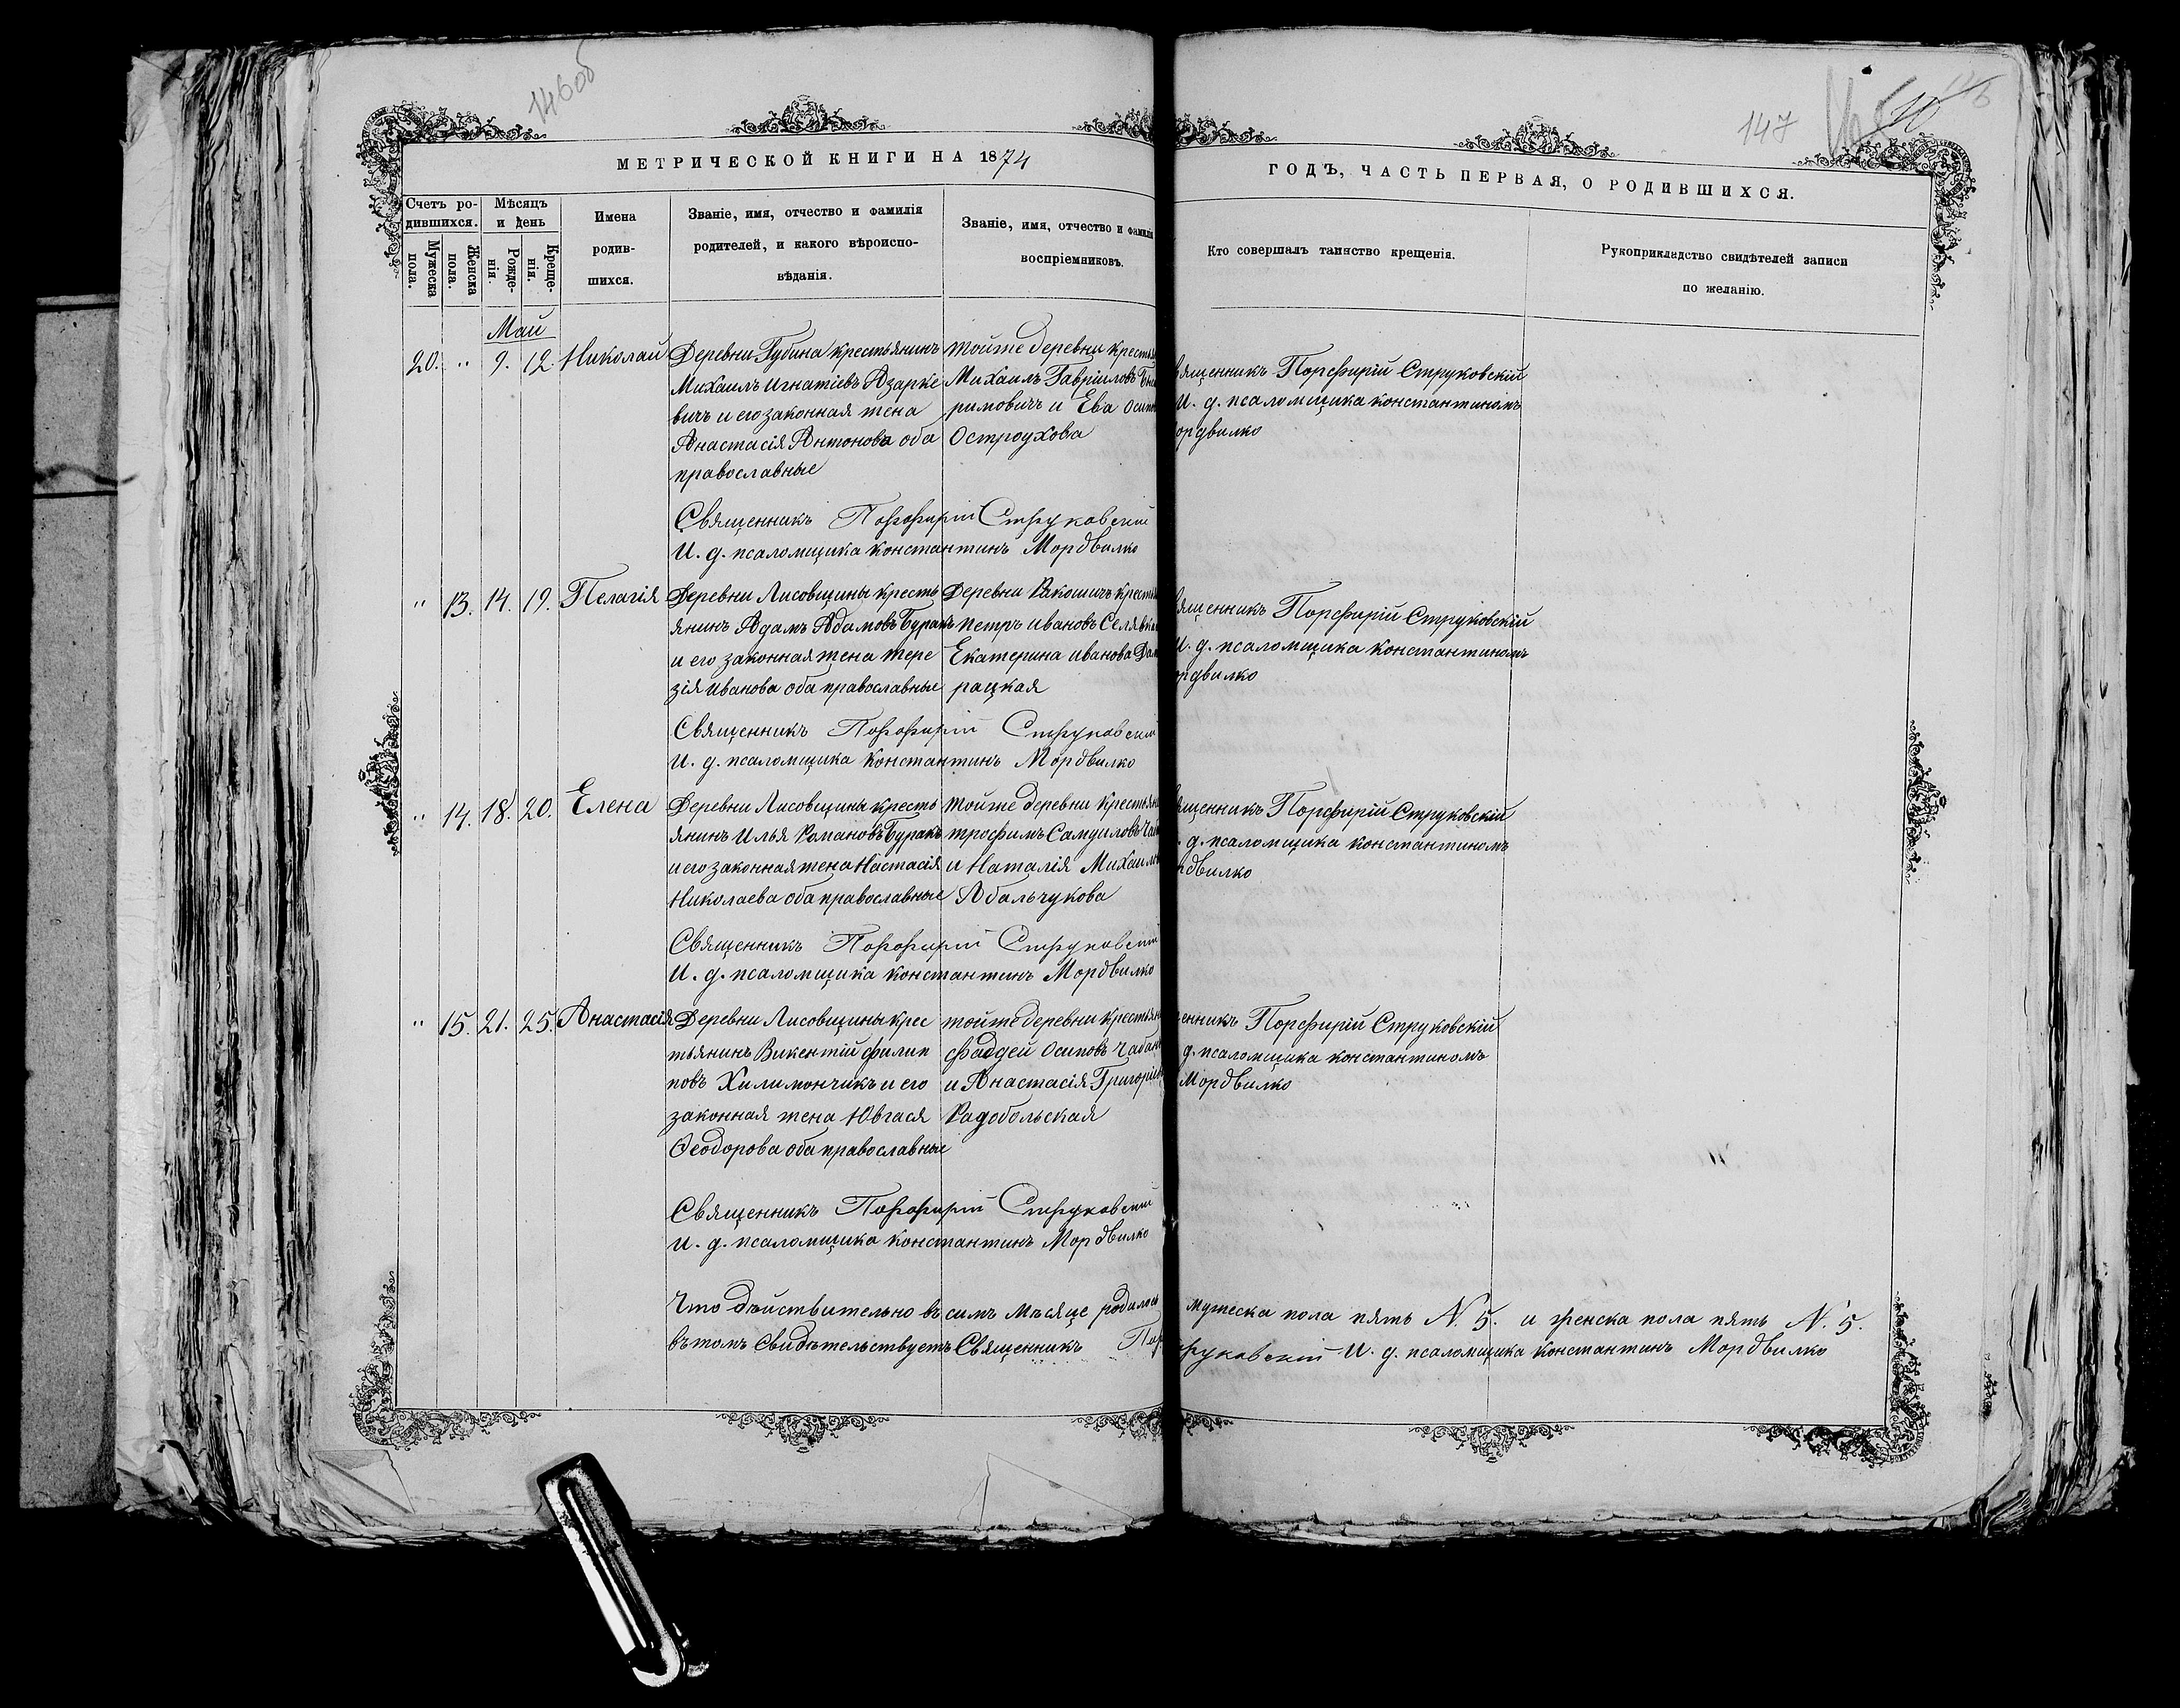 146об
МЕТРИЧЕСКОЙ КНИГИ НА 1874
Счетъ родившихся.
Мужеска пола.
Женска пола.
Мѣсяцъ и день
Рожденія.
Крещенія.
Имена родившихся.
Званіе, имя, отчество и фамилія
родителей, и какого вѣроиспо-
вѣданія.
Званіе, имя, отчество и фамилія
воспріемниковъ.
Май
20. " 9. 12. Николай
Деревни Губина крестьянинъ
Михаилъ Игнатіевъ Азарке
вичъ и его законная жена
Анастасія Антонова оба
православные
тойже деревни кресть
Михаилъ Гавріиловъ
римович и Ева Осип
Остроухова
Священникъ Порфирій Струковскій
И. д. псаломщика Константинъ Мордвилко
" 13. 14. 19. Пелагія
Деревни Лисовщины кресть
янинъ Адамъ Адамовъ Буракъ
и его законная жена Тере
зія Иванова оба православные
Деревни Ракошичъ кресть
Петръ Ивановъ Селявка
Екатерина Иванова Дом
рацкая
Священникъ Порфирій Струковскій
И. д. псаломщика Константинъ Мордвилко
" 14. 18. 20. Елена
Деревни Лисовщины кресть
янинъ Илья Романовъ Буракъ
и его законная жена Настасія
Николаева оба православные
тойже деревни крестьян
Трофимъ Самуиловъ Чаб
и Наталія Михаил
Абальчукова
Священникъ Порфирій Струковскій
И. д. псаломщика Константинъ Мордвилко
" 15. 21. 25. Анастасія
Деревни Лисовщины крес
тьянинъ Викентій Филип
повъ Хилимончикъ и его
законная жена Югася
Ѳеодорова оба православные
тойже деревни крестьян
Фаддей Осиповъ Чабан
и Анастасія Григоріев
Радобольская
Священникъ Порфирій Струковскій
И. д. псаломщика Константинъ Мордвилко
Что дѣйствительно въ симъ мѣсяце родилось
въ томъ свидѣтельствуетъ Священникъ Пор
147
ГОДЪ, ЧАСТЬ ПЕРВАЯ, О РОДИВШИХСЯ.
Кто совершалъ таинство крещенія.
Рукоприкладство свидѣтелей записи
по желанію.
вященникъ Порфирій Струковскій
И. д. псаломщика Константиномъ
ордвилко
ященникъ Порфирій Струковскій
И. д. псаломщика Константиномъ
ордвилко
ященникъ Порфирій Струковскій
д. псаломщика Константиномъ
рдвилко
щенникъ Порфирій Струковскій
д. псаломщика Константиномъ
Мордвилко
мужеска пола пять N. 5. и женска пола пять N. 5.
труковскій И. д. псаломщика Константинъ Мордвилко